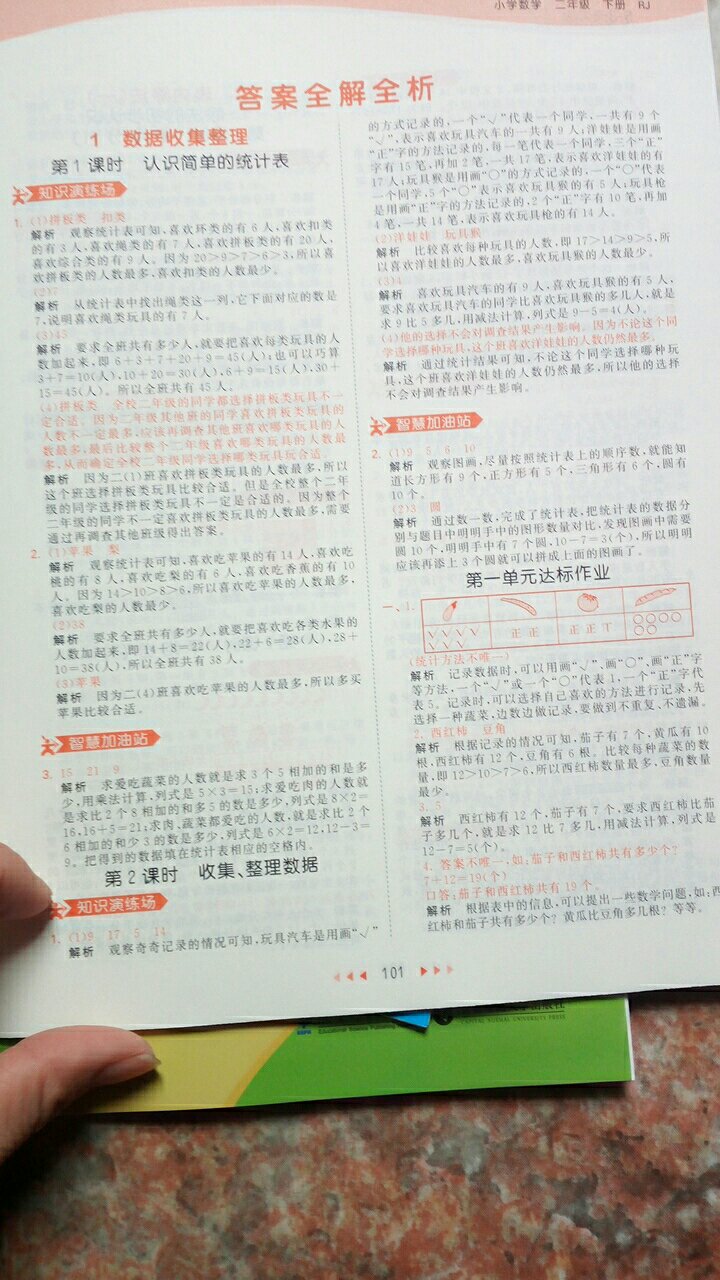 小学数学 二年级 下册 RJ
答案全解全析
1 数据收集整理
第1课时 认识简单的统计表
知识演练场
1. (1)拼板类 扣类
解析 观察统计表可知,喜欢环类的有6人,喜欢扣类
的有3人,喜欢绳类的有7人,喜欢拼板类的有20人,
喜欢综合类的有9人。因为20>9>7>6>3,所以喜
欢拼板类的人数最多,喜欢扣类的人数最少。
(2)7
解析 从统计表中找出绳类这一列,它下面对应的数是
7,说明喜欢绳类玩具的有7人。
(3)45
解析 要求全班共有多少人,就要把喜欢每类玩具的人
数加起来,即6+3+7+20+9=45(人);也可以巧算
3+7=10(人),10+20=30(人),6+9=15(人),30+
15=45(人)。所以全班共有45人。
(4)拼板类 全校二年级的同学都选择拼板类玩具不一
定合适。因为二年级其他班的同学喜欢拼板类玩具的
人数不一定最多,应该再调查其他班喜欢哪类玩具的人
数最多,最后比较整个二年级喜欢哪类玩具的人数最
多,从而确定全校二年级同学选择哪类玩具玩合适。
解析 因为二(1)班喜欢拼板类玩具的人数最多,所以
这个班选择拼板类玩具比较合适。但是全校整个二年
级的同学选择拼板类玩具不一定是合适的。因为整个
二年级的同学不一定喜欢拼板类玩具的人数最多,需要
通过再调查其他班级得出答案。
2. (1)苹果 梨
解析 观察统计表可知,喜欢吃苹果的有14人,喜欢吃
桃的有8人,喜欢吃梨的有6人,喜欢吃香蕉的有10
人。因为14>10>8>6,所以喜欢吃苹果的人数最多,
喜欢吃梨的人数最少。
(2)38
解析 要求全班共有多少人,就要把喜欢吃各类水果的
人数加起来,即14+8=22(人),22+6=28(人),28+
10=38(人),所以全班共有38人。
(3)苹果
解析 因为二(4)班喜欢吃苹果的人数最多,所以多买
苹果比较合适。
智慧加油站
3. 15 21 9
解析 求爱吃蔬菜的人数就是求3个5相加的和是多
少,用乘法计算,列式是5×3=15;求爱吃肉的人数就
是求比2个8相加的和多5的数是多少,列式是8×2=
16,16+5=21;求肉、蔬菜都爱吃的人数,就是求比2个
6相加的和少3的数是多少,列式是6×2=12,12-3=
9。把得到的数据填在统计表相应的空格内。
第2课时 收集、整理数据
知识演练场
1. (1)9 17 5 14
解析 观察奇奇记录的情况可知,玩具汽车是用画“√”
的方式记录的,一个“√”代表一个同学,一共有9个
“√”,表示喜欢玩具汽车的一共有9人;洋娃娃是用画
“正”字的方法记录的,每一笔代表一个同学,三个“正”
字有15笔,再加2笔,一共17笔,表示喜欢洋娃娃的有
17人;玩具猴是用画“○”的方式记录的,一个“○”代表
一个同学,5个“○”表示喜欢玩具猴的有5人;玩具枪
是用画“正”字的方法记录的,2个“正”字有10笔,再加
4笔,一共14笔,表示喜欢玩具枪的有14人。
(2)洋娃娃 玩具猴
解析 比较喜欢每种玩具的人数,即17>14>9>5,所
以喜欢洋娃娃的人数最多,喜欢玩具猴的人数最少。
(3)4
解析 喜欢玩具汽车的有9人,喜欢玩具猴的有5人,
要求喜欢玩具汽车的同学比喜欢玩具猴的多几人,就是
求9比5多几,用减法计算,列式是9-5=4(人)。
(4)他的选择不会对调查结果产生影响。因为不论这个同
学选择哪种玩具,这个班喜欢洋娃娃的人数仍然最多。
解析 通过统计结果可知,不论这个同学选择哪种玩
具,这个班喜欢洋娃娃的人数仍然最多,所以他的选择
不会对调查结果产生影响。
智慧加油站
2. (1)9 5 6 10
解析 观察图画,尽量按照统计表上的顺序数,就能知
道长方形有9个,正方形有5个,三角形有6个,圆有
10个。
(2)3 圆
解析 通过数一数,完成了统计表,把统计表的数据分
别与题目中明明手中的图形数量对比,发现图画中需要
圆10个,明明手中有7个圆,10-7=3(个),所以明明
应该再添上3个圆就可以拼成上面的图画了。
第一单元达标作业
一、1.
√√√√ 正正 正正丅 ○○○○
√√√ ○○
(统计方法不唯一)
解析 记录数据时,可以用画“√”、画“○”、画“正”字
等方法,一个“√”或一个“○”代表1,一个“正”字代
表5。记录时,可以选择自己喜欢的方法进行记录,先
选择一种蔬菜,边数边做记录,要做到不重复、不遗漏。
2. 西红柿 豆角
解析 根据记录的情况可知,茄子有7个,黄瓜有10
根,西红柿有12个,豆角有6根。比较每种蔬菜的数
量,即12>10>7>6,所以西红柿数量最多,豆角数量
最少。
3. 5
解析 西红柿有12个,茄子有7个,要求西红柿比茄
子多几个,就是求12比7多几,用减法计算,列式是
12-7=5(个)。
4. 答案不唯一,如:茄子和西红柿共有多少个?
7+12=19(个)
口答:茄子和西红柿共有19个。
解析 根据表中的信息,可以提出一些数学问题,如:西
红柿和茄子共有多少个?黄瓜比豆角多几根?等等。
101
CAPITAL NORMAL UNIVERSITY PRESS